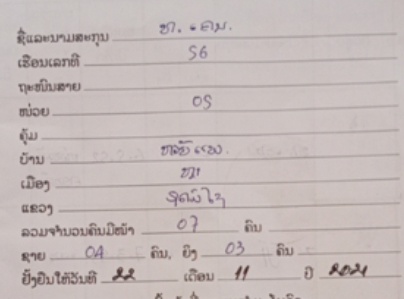 ຊື່ແລະນາມສະກຸນ ທ. ຄມ.
ເຮືອນເລກທີ 56
ຖະໜົນສາຍ
ໜ່ວຍ 05
ຄຸ້ມ
ບ້ານ
ເມືອງ
ແຂວງ ອຸດົມໄຊ
ລວມຈຳນວນຄົນມີໜ້າ 07 ຄົນ
ຊາຍ 04 ຄົນ, ຍິງ 03 ຄົນ
ຢັ້ງຢືນໃຫ້ວັນທີ 22 ເດືອນ 11 ປີ 2021